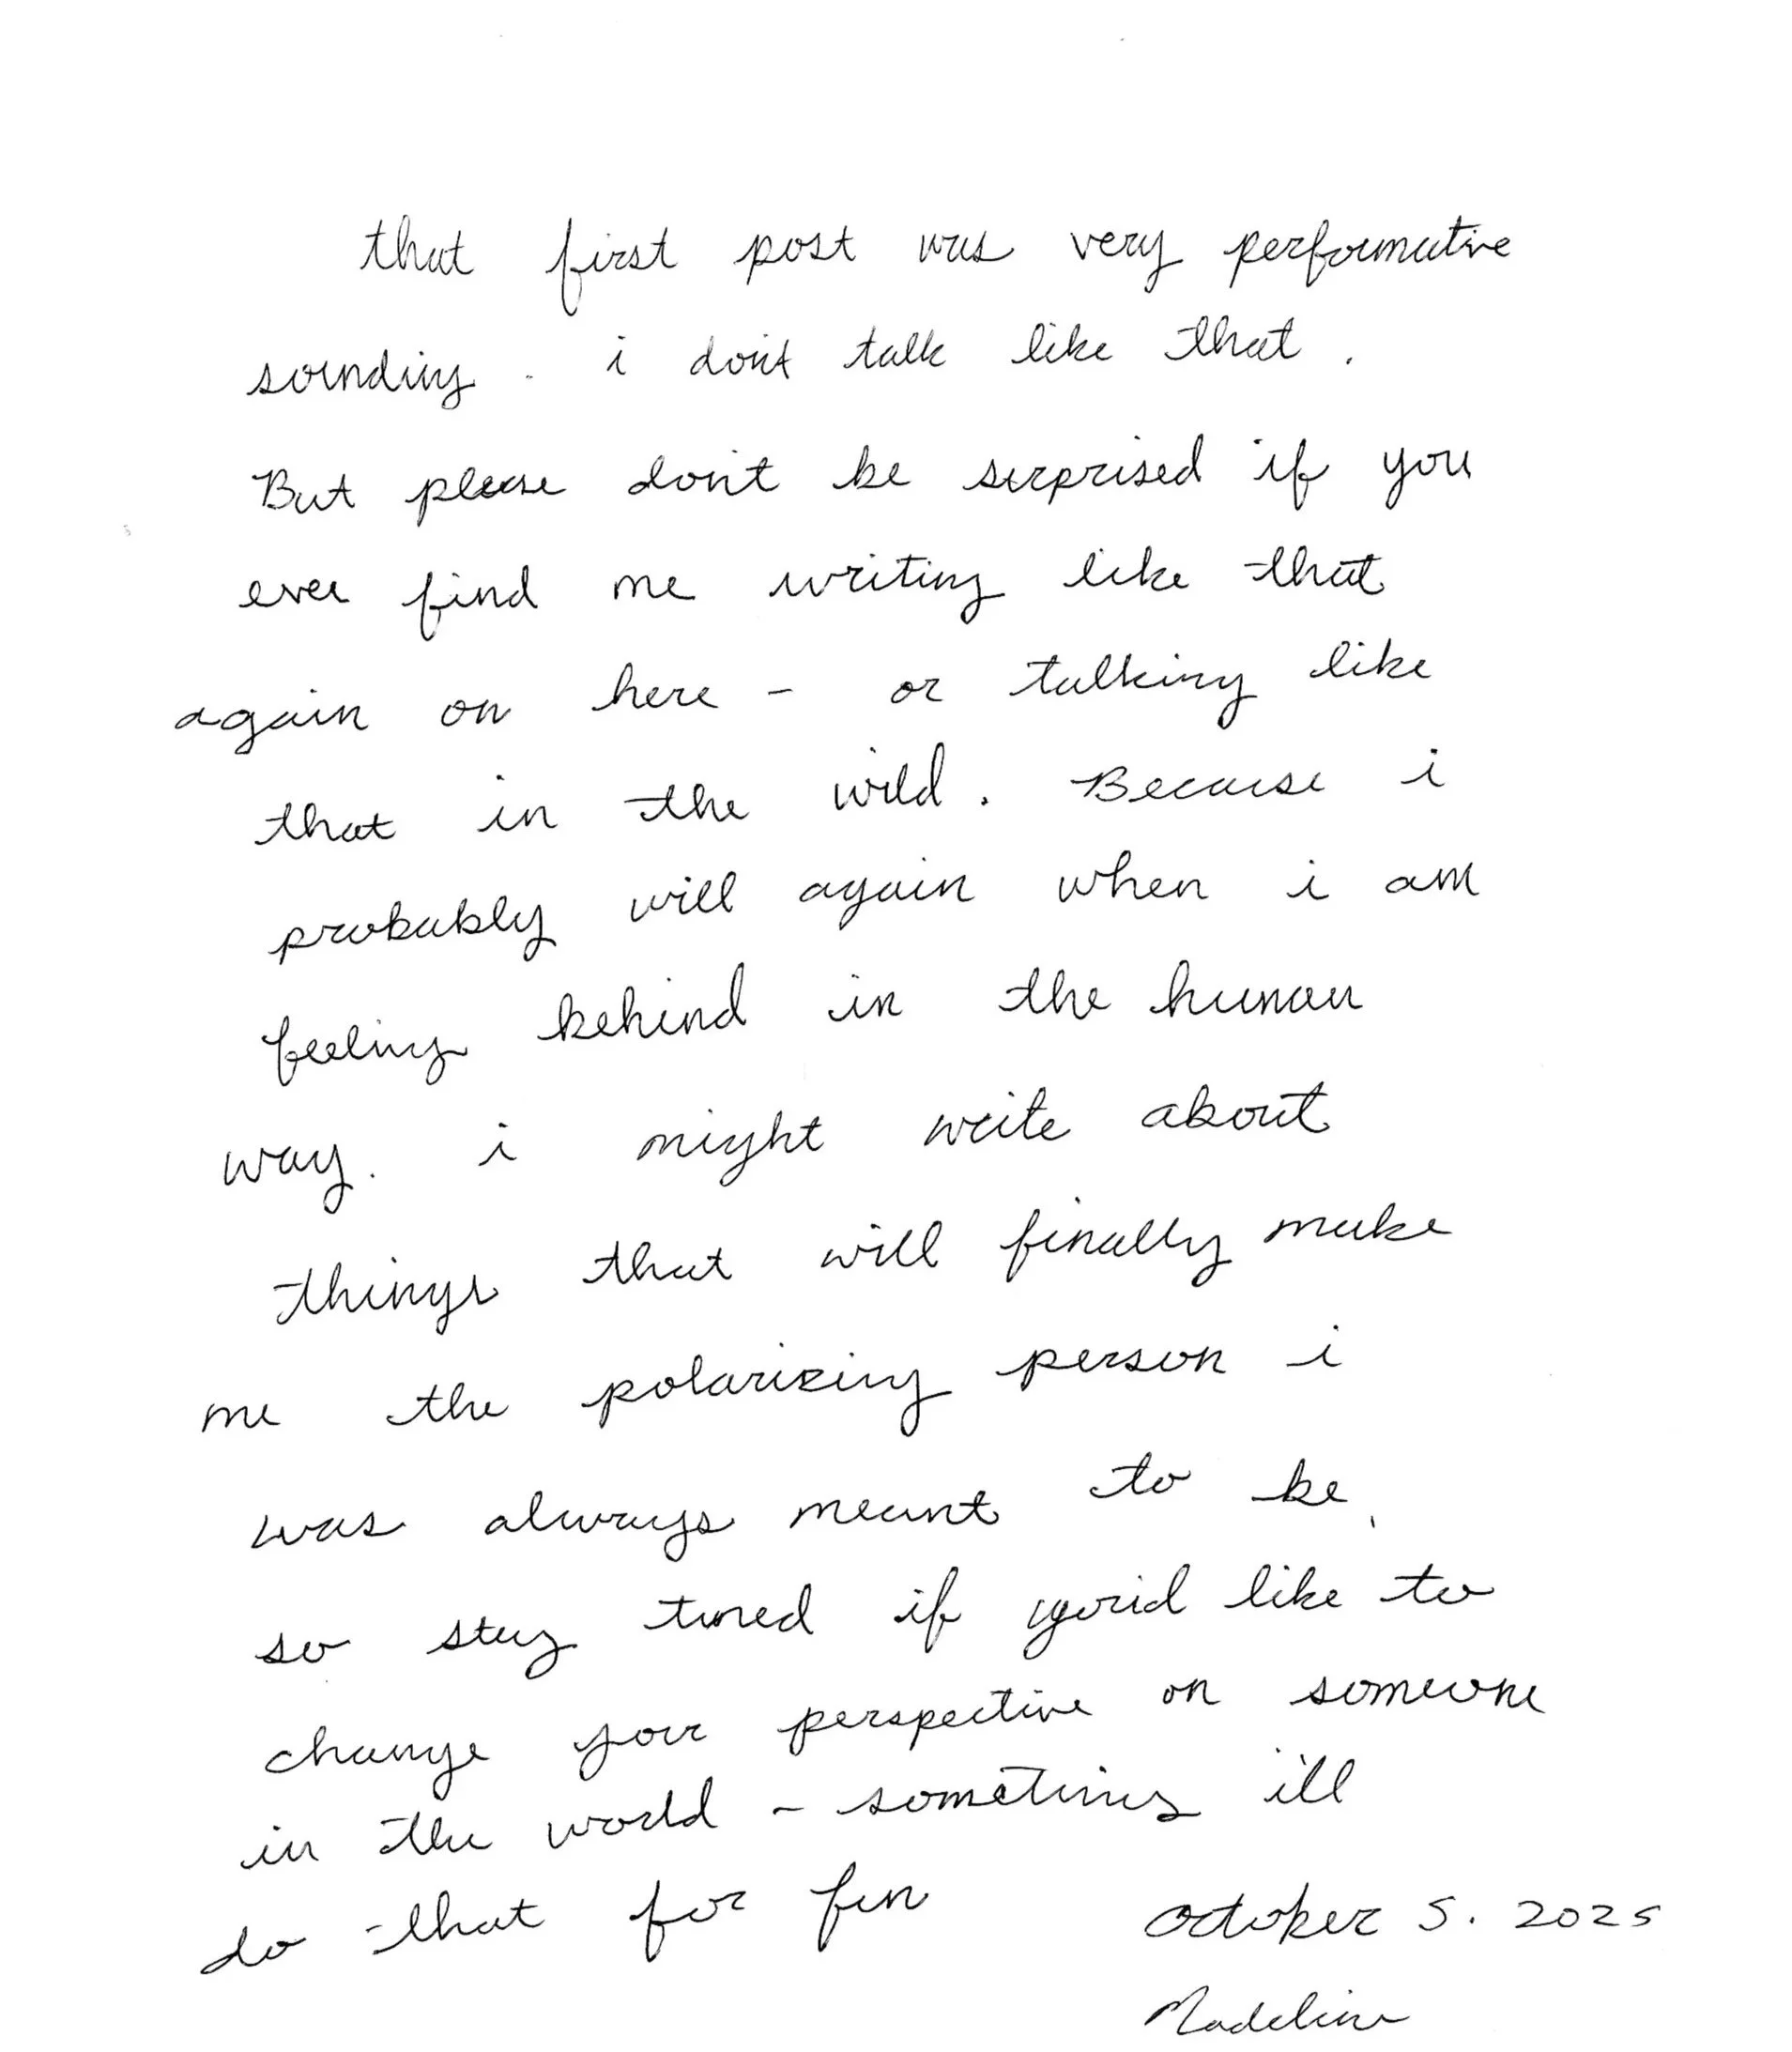 that first post was very performative
sounding. i don't talk like that.
But please don't be surprised if you
ever find me writing like that
again on here - or talking like
that in the wild. Because i
probably will again when i am
feeling behind in the human
way. i might write about
things that will finally make
me the polarizing person i
was always meant to be.
so stay tuned if you'd like to
change your perspective on someone
in the world - sometimes i'll
do that for fun
october 5. 2025
Madeline